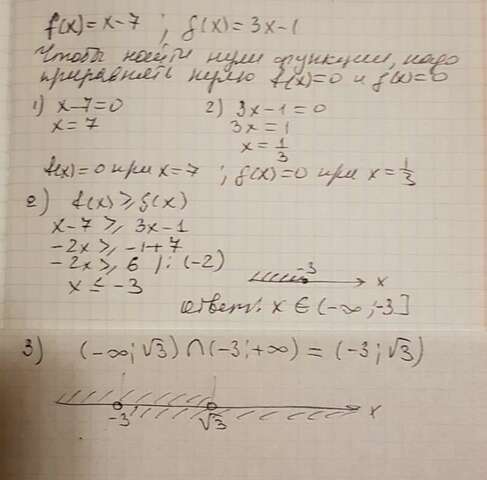 f(x)=x-7 ; g(x)=3x-1
Чтобы найти нули функции, надо
приравнять нулю f(x)=0 и g(x)=0
1) x-7=0
x=7
2) 3x-1=0
3x=1
x=1/3
f(x)=0 при x=7 ; g(x)=0 при x=1/3
2) f(x)≥g(x)
x-7≥3x-1
-2x≥-1+7
-2x≥6 |:(-2)
x≤-3
-3 x
Ответ: x∈(-∞;-3]
3) (-∞;√3)∩(-3;+∞)=(-3;√3)
-3 √3 x